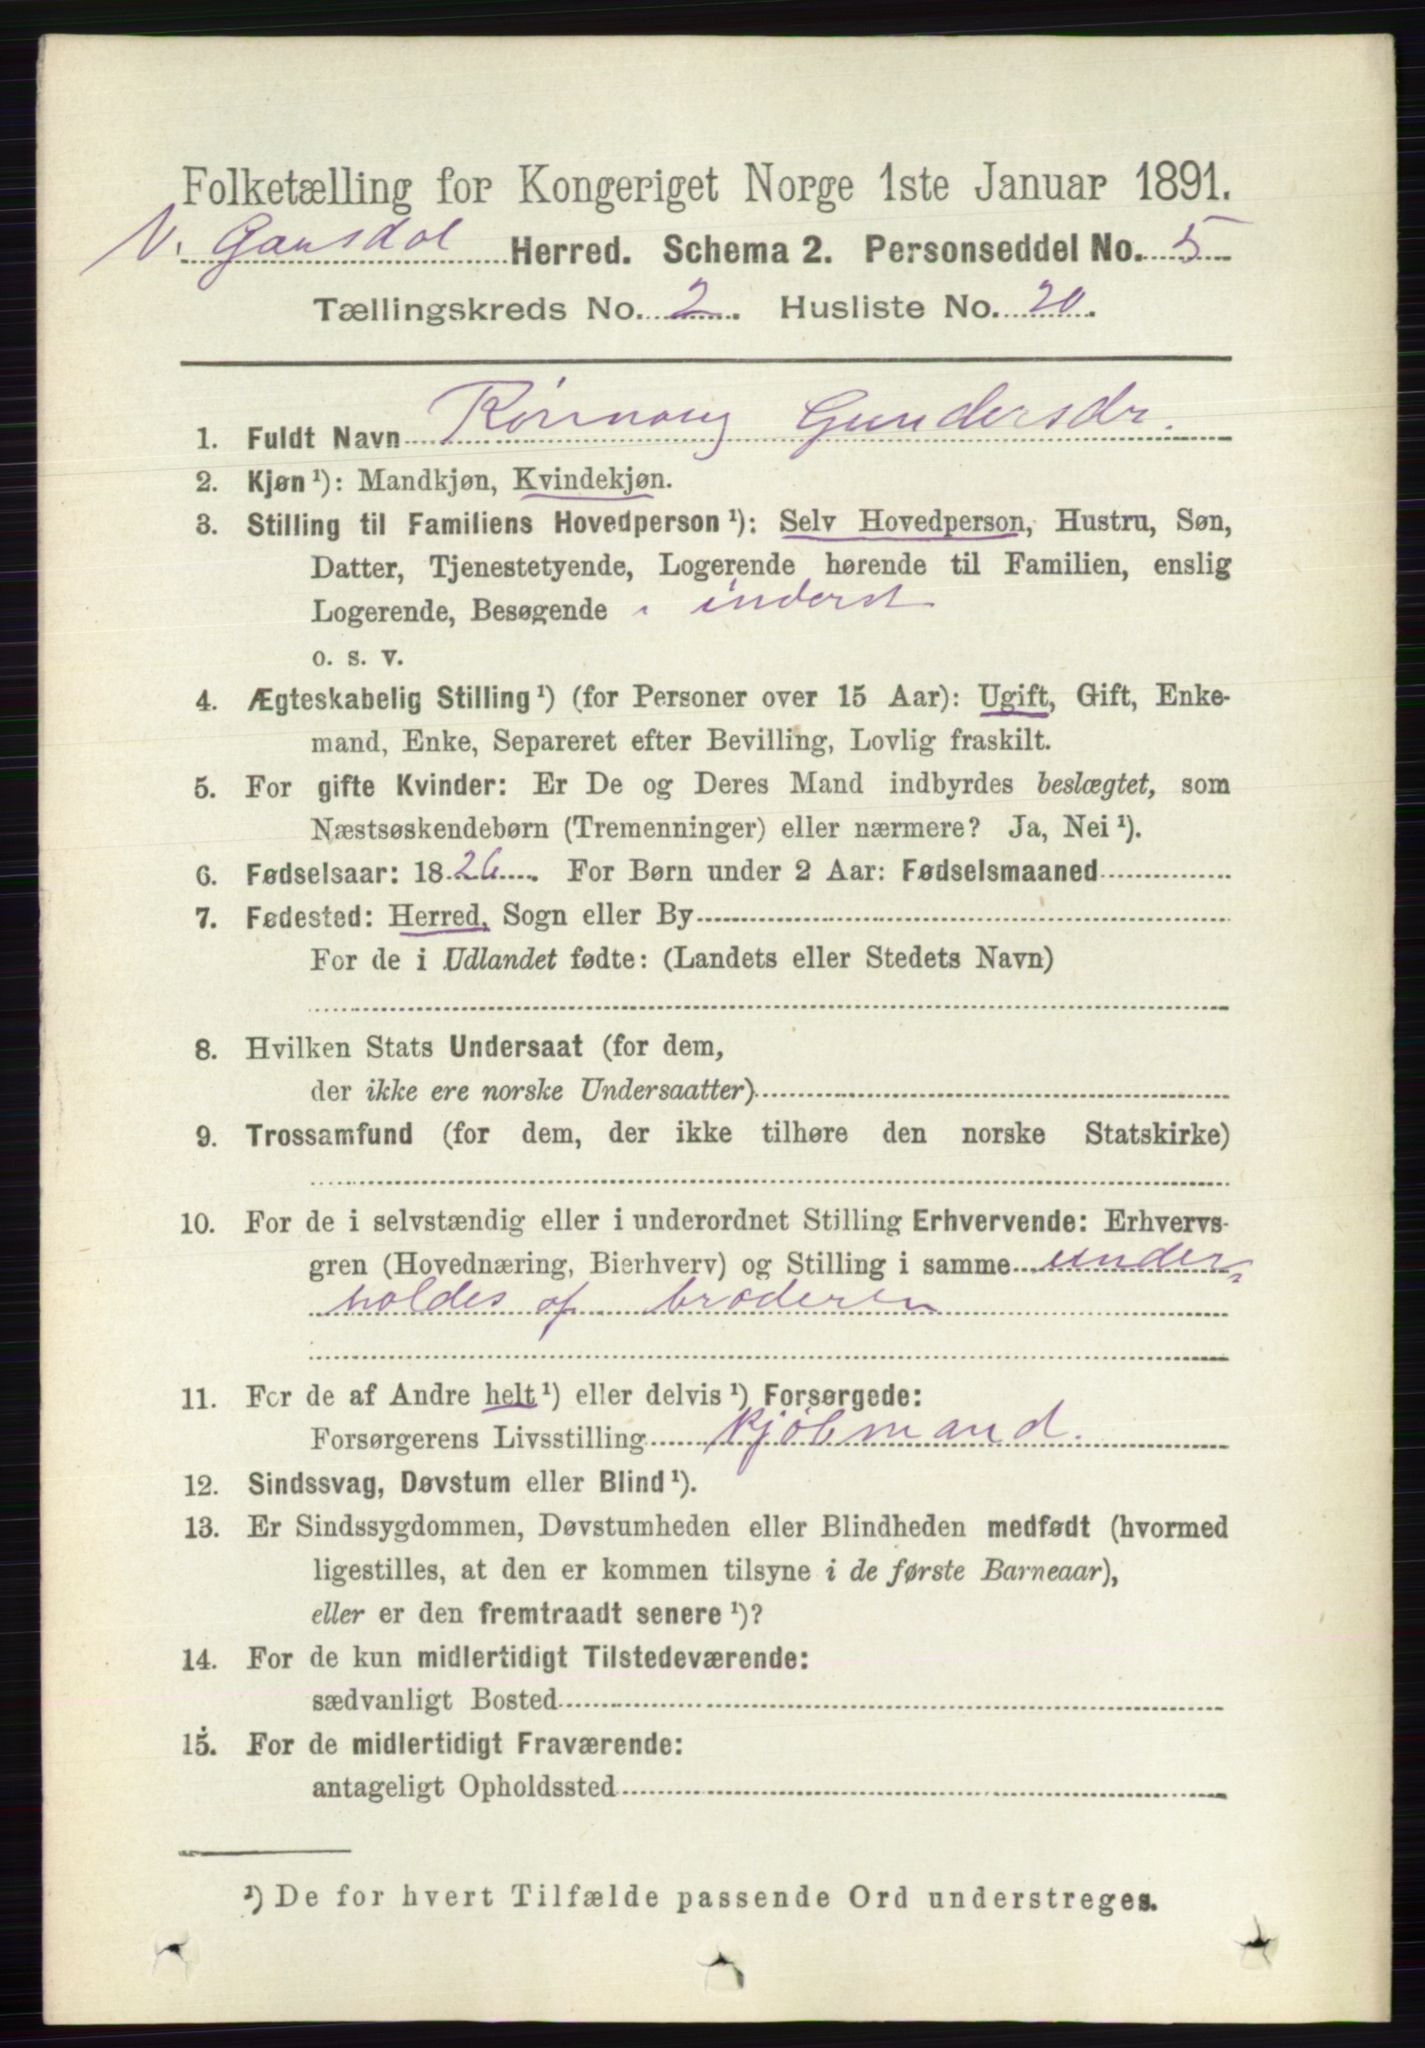 Folketælling for Kongeriget Norge 1ste Januar 1891.
N. Gausdal Herred. Schema 2. Personseddel No. 5
Tællingskreds No. 2. Husliste No. 20.
1. Fuldt Navn Rønnoug Gundersdr.
2. Kjøn¹): Mandkjøn, Kvindekjøn.
3. Stilling til Familiens Hovedperson¹): Selv Hovedperson, Hustru, Søn,
Datter, Tjenestetyende, Logerende hørende til Familien, enslig
Logerende, Besøgende inderst
o. s. v.
4. Ægteskabelig Stilling¹) (for Personer over 15 Aar): Ugift, Gift, Enke-
mand, Enke, Separeret efter Bevilling, Lovlig fraskilt.
5. For gifte Kvinder: Er De og Deres Mand indbyrdes beslægtet, som
Næstsøskendebørn (Tremenninger) eller nærmere? Ja, Nei¹).
6. Fødselsaar: 1826. For Børn under 2 Aar: Fødselsmaaned
7. Fødested: Herred, Sogn eller By
For de i Udlandet fødte: (Landets eller Stedets Navn)
8. Hvilken Stats Undersaat (for dem,
der ikke ere norske Undersaatter)
9. Trossamfund (for dem, der ikke tilhøre den norske Statskirke)
10. For de i selvstændig eller i underordnet Stilling Erhvervende: Erhvervs-
gren (Hovednæring, Bierhverv) og Stilling i samme under-
holdes af broderen
11. For de af Andre helt¹) eller delvis¹) Forsørgede:
Forsørgerens Livsstilling Kjøbmand.
12. Sindssvag, Døvstum eller Blind¹).
13. Er Sindssygdommen, Døvstumheden eller Blindheden medfødt (hvormed
ligestilles, at den er kommen tilsyne i de første Barneaar),
eller er den fremtraadt senere¹)?
14. For de kun midlertidigt Tilstedeværende:
sædvanligt Bosted
15. For de midlertidigt Fraværende:
antageligt Opholdssted
¹) De for hvert Tilfælde passende Ord understreges.